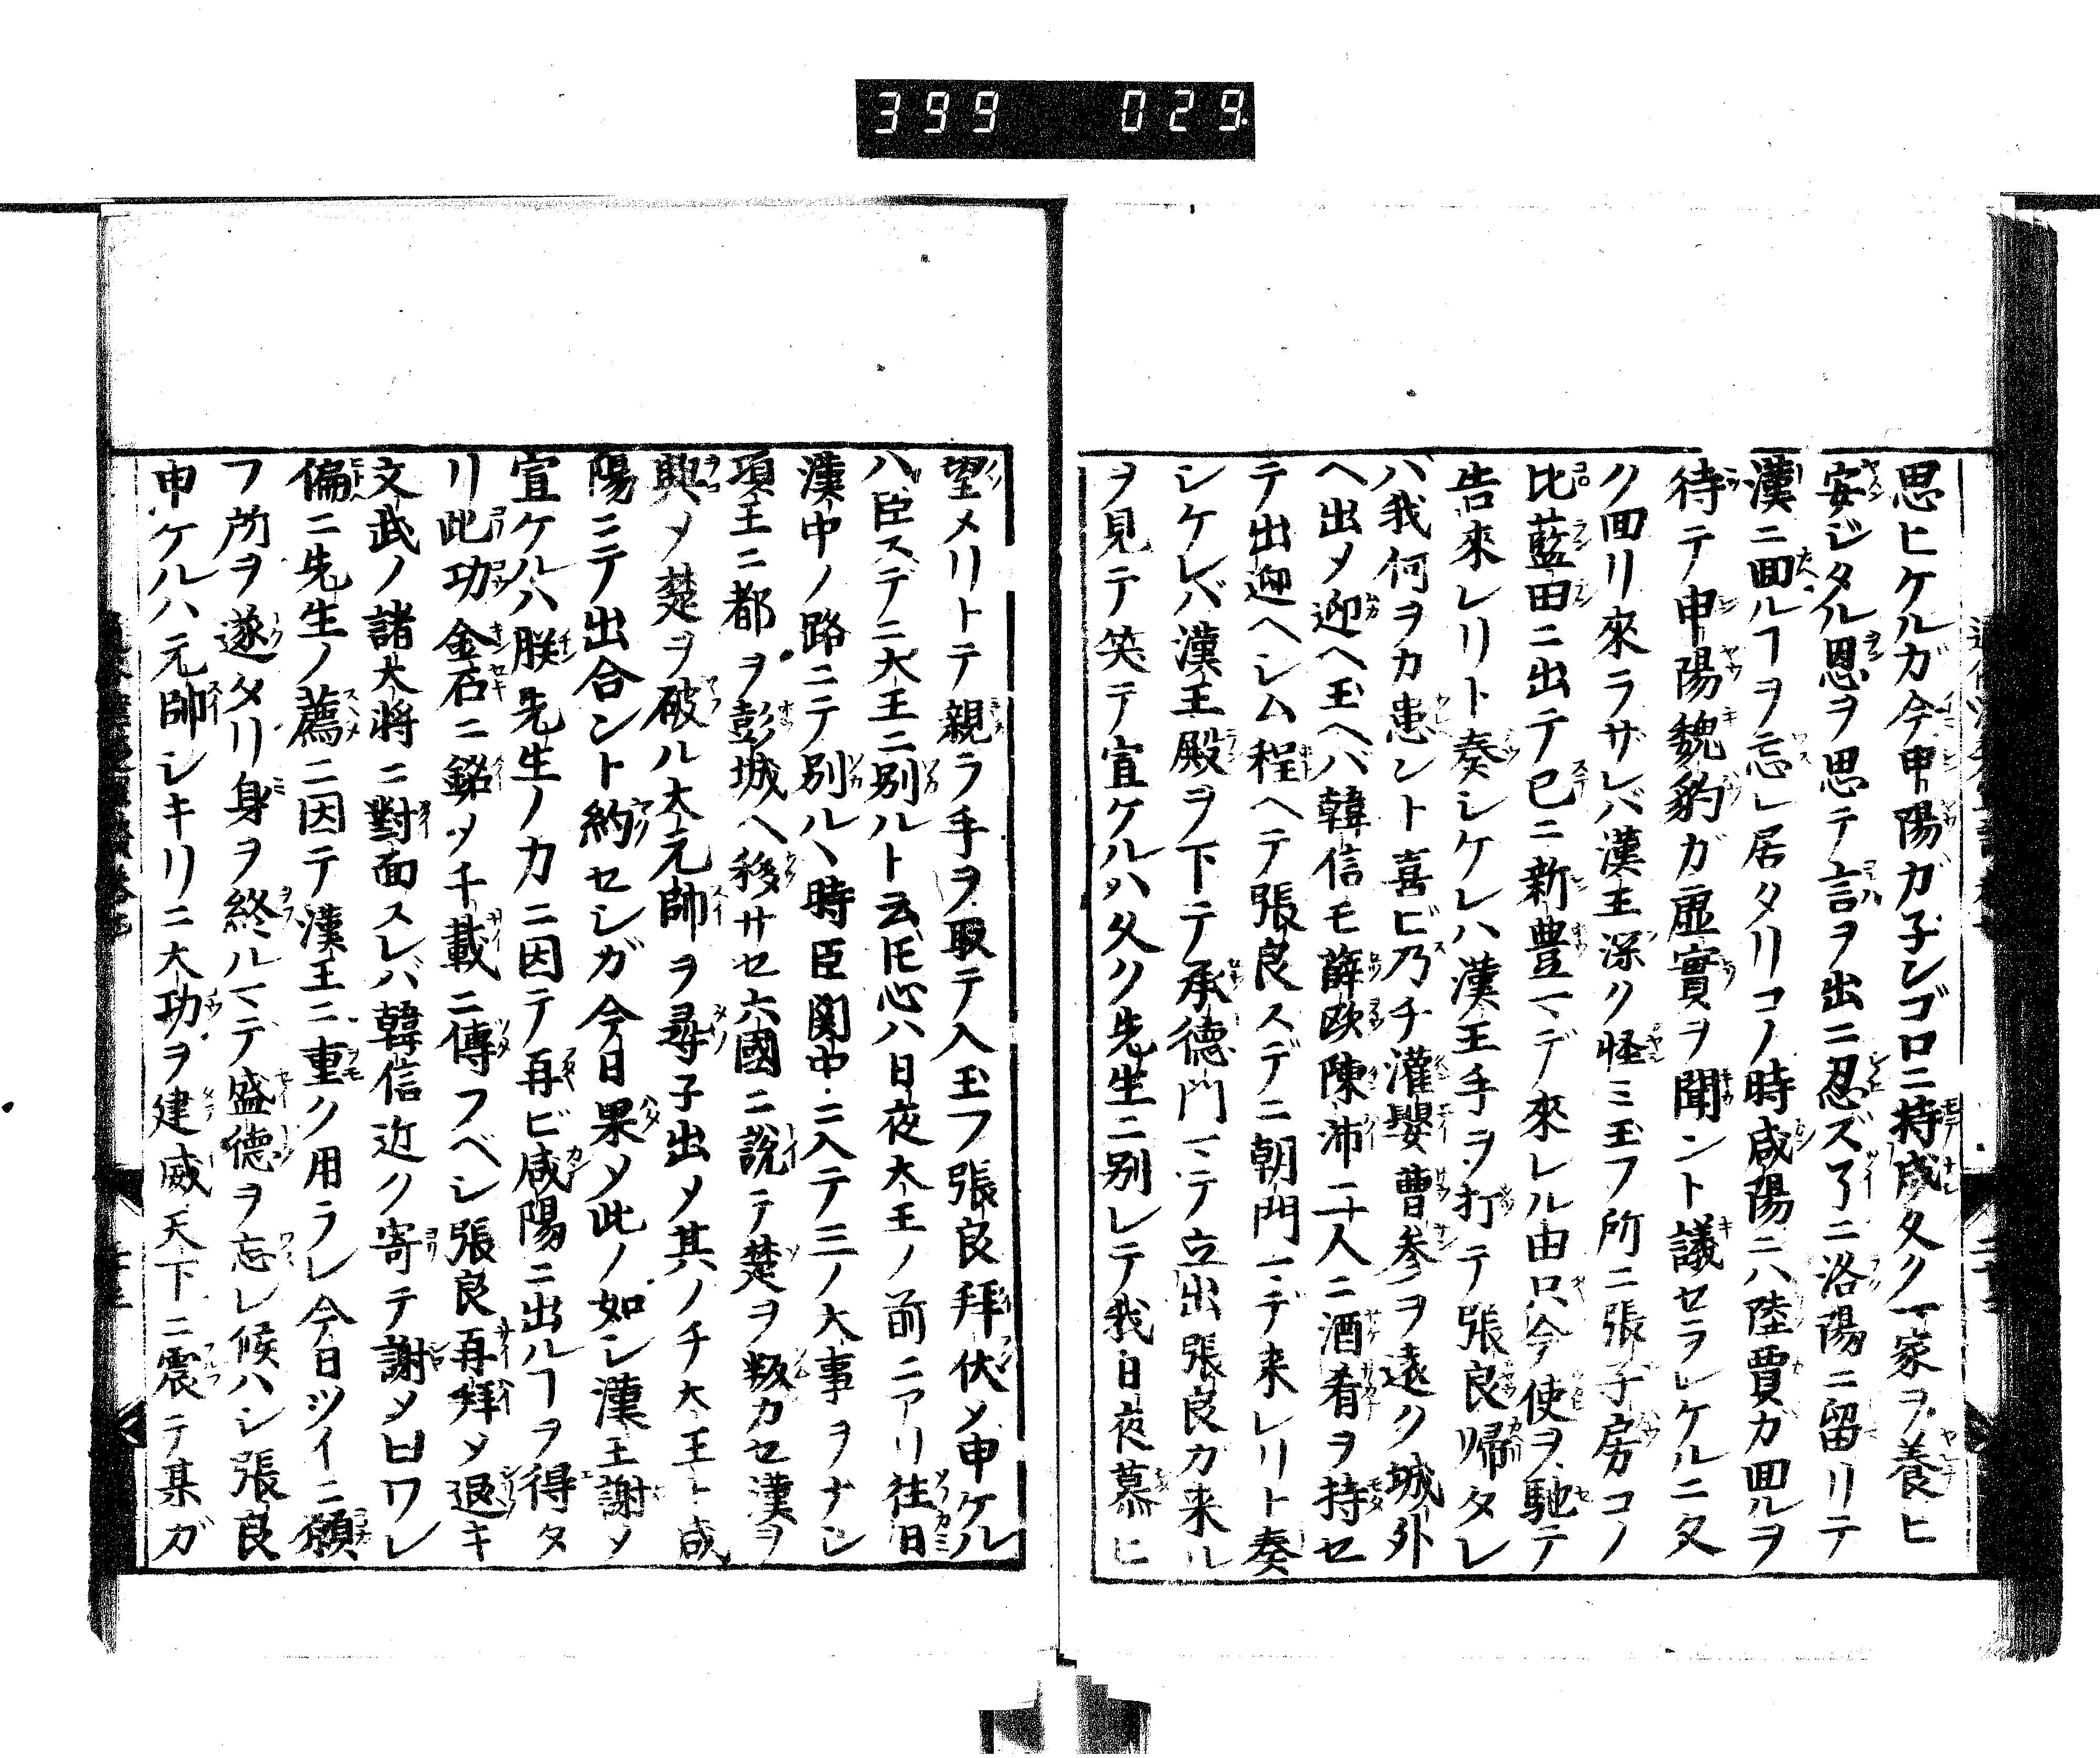 399 029
思ヒケルガ今申陽ガ子ンゴロニ持成久ク一家ヲ養ヒ
安ジタル恩ヲ思テ言ヲ出ニ忍ズ了ニ洛陽ニ留リテ
漢ニ囬ルヿヲ忘レ居タリコノ時咸陽ニハ陸賈ガ囬ルヲ
待テ申陽魏豹ガ虚實ヲ聞ント議セラレケルニ久
ク囬リ來ラサレバ漢王深ク怪ミ玉フ所ニ張子房コノ
比藍田ニ出テ已ニ新豊マデ來レル由只今使ヲ馳テ
告來レリト奏シケレハ漢王手ヲ打テ張良帰リタレ
バ我何ヲカ患ント喜ビ乃チ灌嬰曹参ヲ遠ク城外
ヘ出メ迎ヘ玉ヘバ韓信モ薛欧陳沛二人ニ酒肴ヲ持セ
テ出迎ヘシム程ヘテ張良スデニ朝門マデ来レリト奏
シケレバ漢王殿ヲ下テ承德門マテ立出張良カ来ル
ヲ見テ笑テ宣ケルハ久ク先生ニ别レテ我日夜慕ヒ
望メリトテ親ラ手ヲ取テ入玉フ張良拜伏メ申ケル
ハ臣ステニ大王ニ别ルト云𪜈心ハ日夜大王ノ前ニアリ往日
漢中ノ路ニテ别ルヽ時臣関中ニ入テ三ノ大事ヲナシ
項王ニ都ヲ彭城ヘ移サセ六國ニ說テ楚ヲ叛カセ漢ヲ
興メ楚ヲ破ル大元帥ヲ尋子出メ其ノチ大王ト咸
陽ニテ出合ント約セシガ今日果メ此ノ如シ漢王謝メ
宣ケルハ朕先生ノカニ因テ再ビ咸陽ニ出ルヿヲ得タ
リ此功金石ニ銘メ千載ニ傳フベシ張良再拜メ退キ
文武ノ諸大将ニ對面スレバ韓信近ク寄テ謝メ曰ワレ
偏ニ先生ノ薦ニ因テ漢王ニ重ク用ラレ今日ツイニ願
フ所ヲ遂タリ身ヲ終ルマデ盛德ヲ忘レ候ハシ張良
申ケルハ元帥シキリニ大功ヲ建威天下ニ震テ某ガ